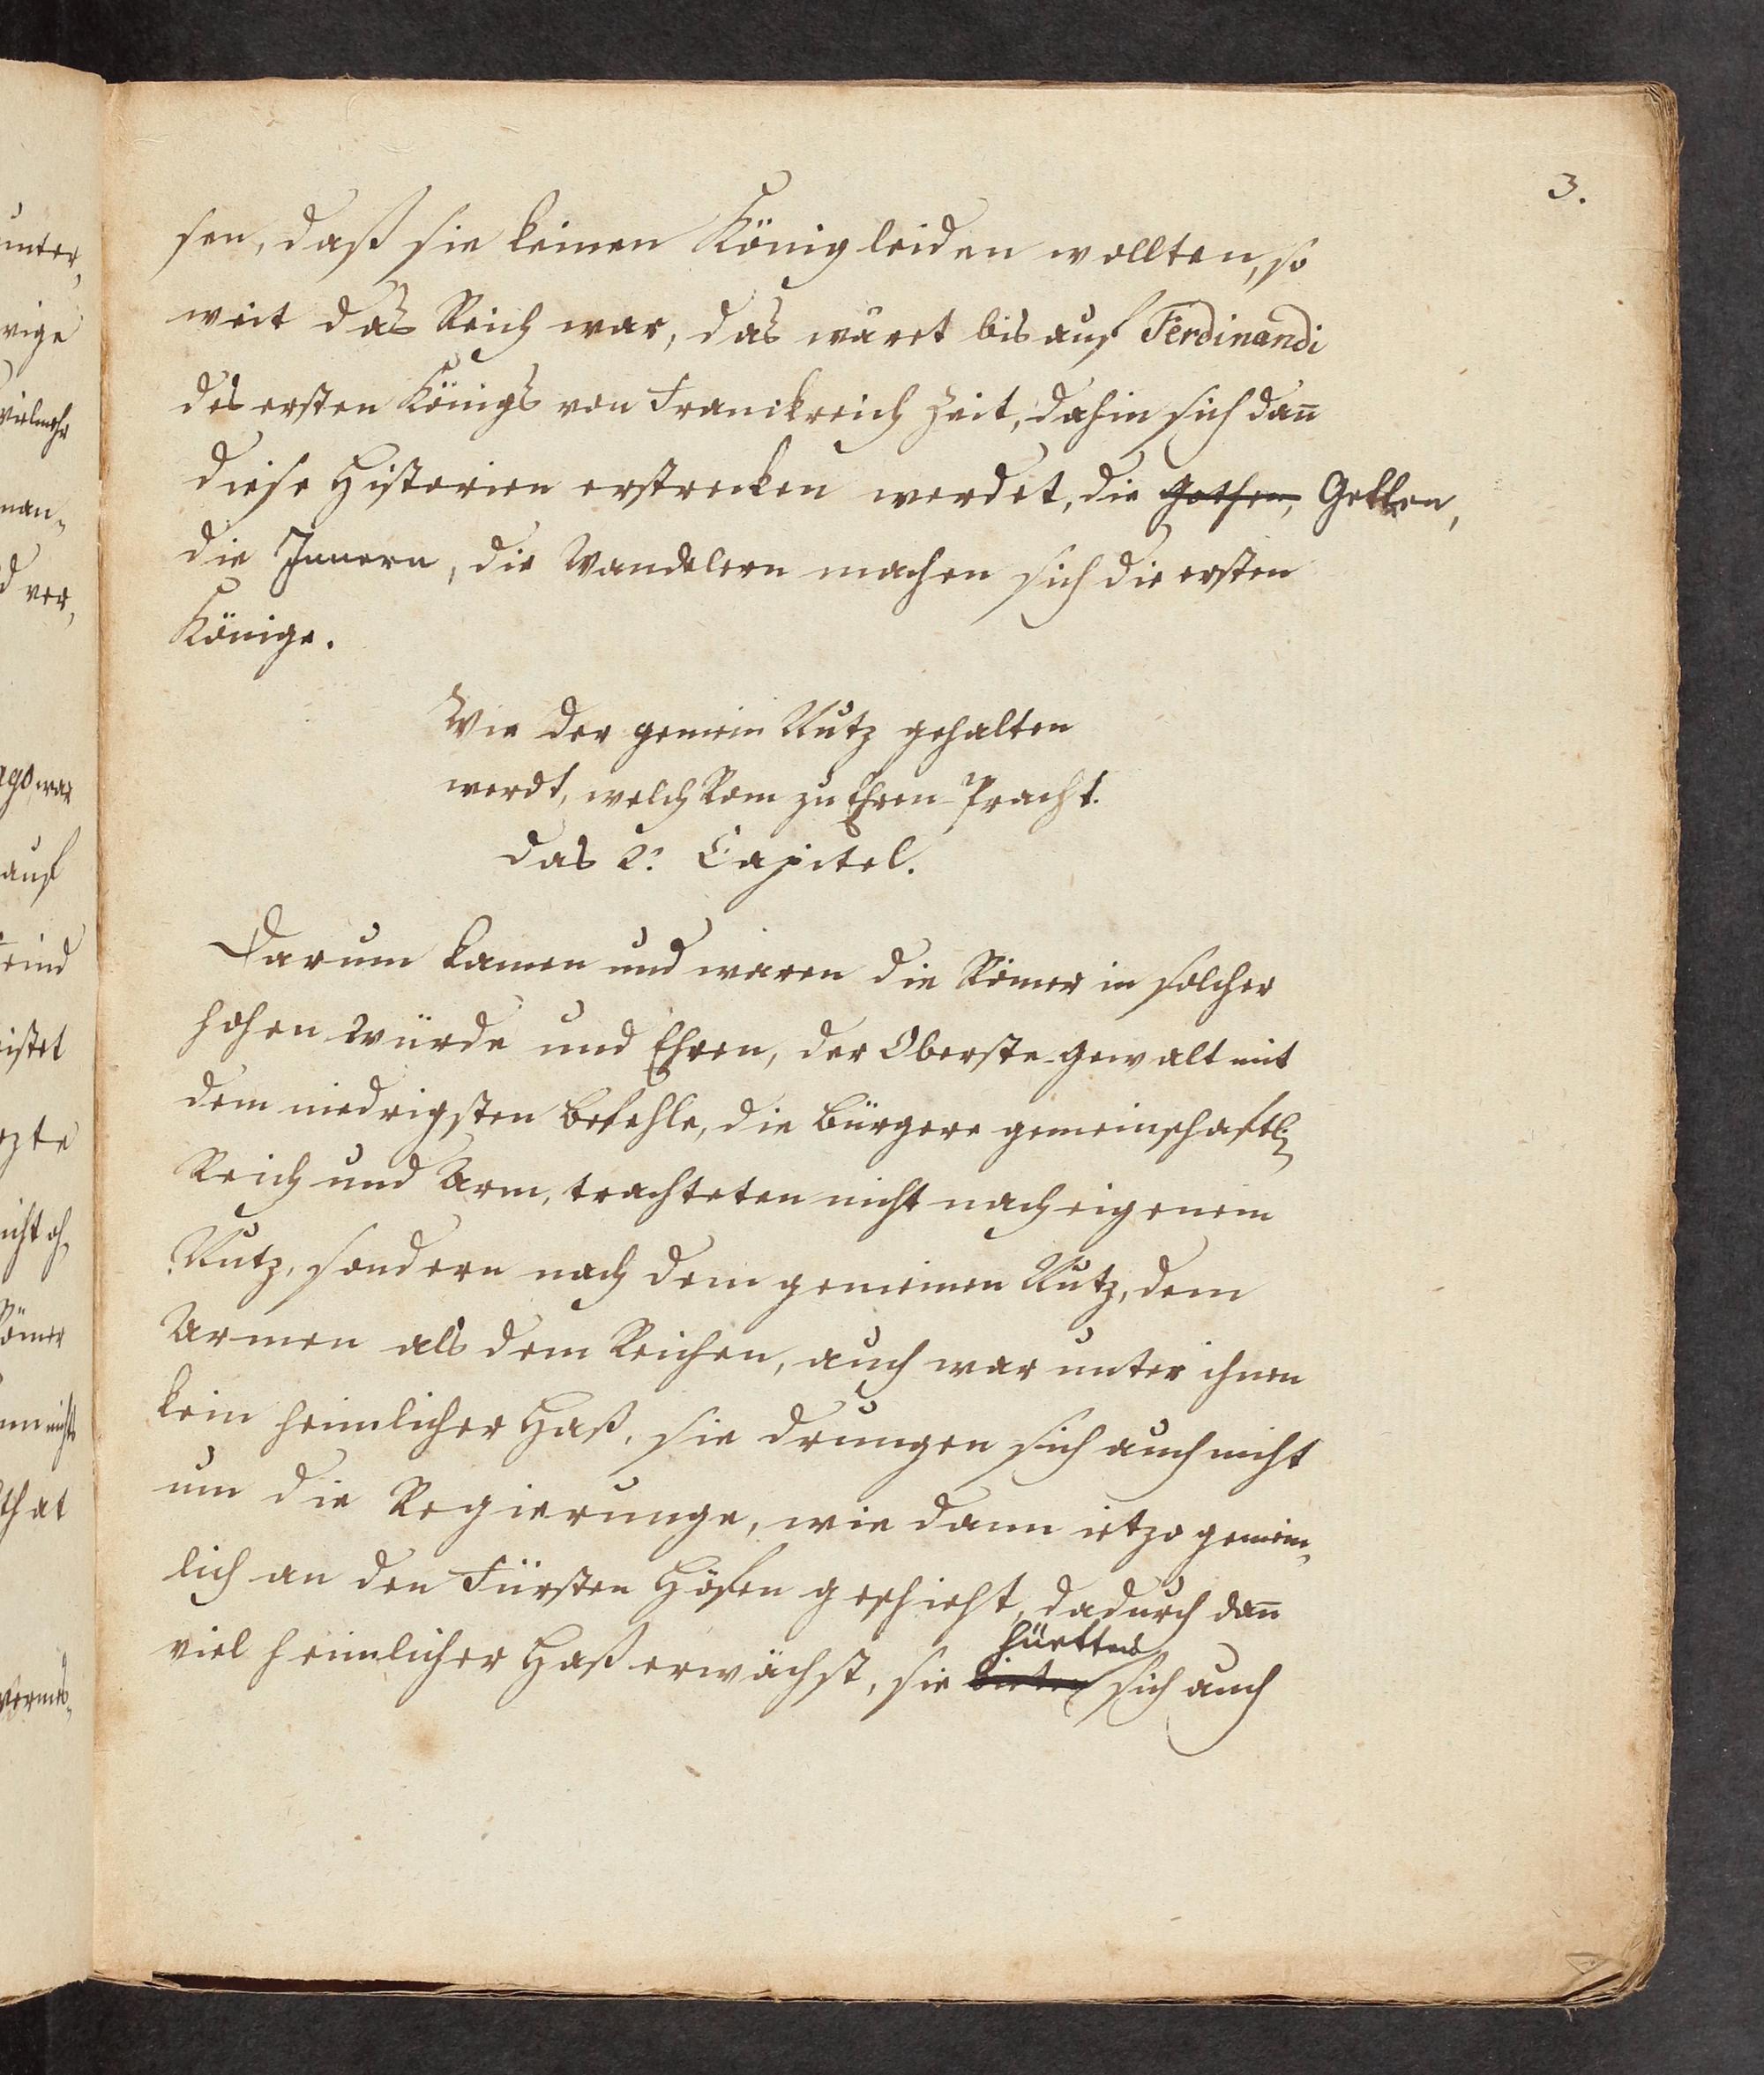 3.
sen, daß sie keinen König leiden wollten, so
weit das Reich war, das wäret bis auf Ferdinandi
des ersten Königs von Franckreich Zeit, dahin sich dan̅
diese Historien erstrecken werdet, die Gothen, Getten,
die Innern, die Wandelern machen sich die ersten
Könige.
Wie der gemein Nutz gehalten
werdt, welch Rom zu Ehren Pracht.
Das 2. Capitel.
Darum kamen und waren die Römer in solcher
hohen Würde und Ehren, der Oberste Gewalt mit
dem niedrigsten befehle, die bürgere gemeinschaftl.
Reich und Arm, trachteten nicht nach eigenem
Nutz, sondern nach dem gemeinen Nutz, dem
Armen als dem Reichen, auch war unter ihnen
kein heimlicher Haß, sie drungen sich auch nicht
um die Regierunge, wie dann ietzo gemein,
lich an den Fürsten Höfen geschieht, dadurch dan̅
hüetten
viel heimlicher Haß erwächst, sie sich auch
unter,
wige
vielmehr
man,
ver,
war
auf
istet
zte
icht
Römer
nichts
that